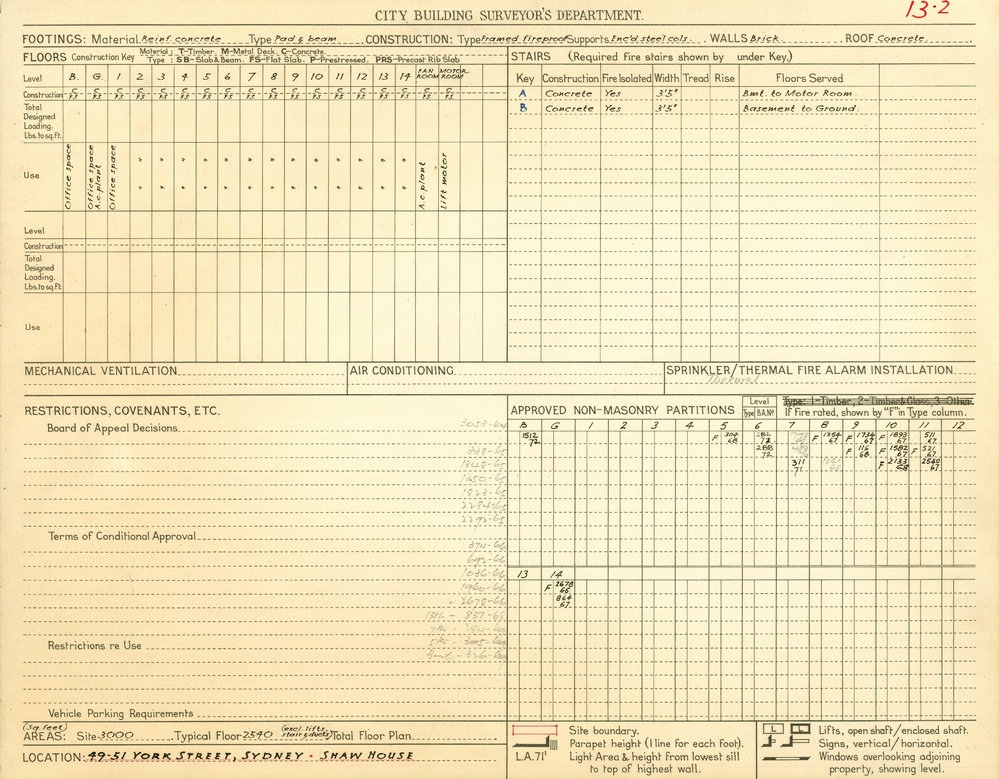 CITY BUILDING SURVEYOR'S DEPARTMENT.
13·2
FOOTINGS: Material Reinf. concrete Type Pad & beam CONSTRUCTION: Type Framed fireproof Supports Enc'd steel cols. WALLS Brick ROOF Concrete.
FLOORS Construction Key Material: T-Timber. M-Metal Deck. C-Concrete.
Type: SB-Slab & Beam. FS-Flat Slab. P-Prestressed. PRS-Precast Rib Slab
Level B. G. 1 2 3 4 5 6 7 8 9 10 11 12 13 14 FAN ROOM MOTOR ROOM
Construction C FS C FS C FS C FS C FS C FS C FS C FS C FS C FS C FS C FS C FS C FS C FS C FS C FS C FS
Total
Designed
Loading.
Lbs. to sq. ft.
Use Office space Office space A.c. plant Office space " " " " " " " " " " " " " A.c. plant Lift motor
" " " " " " " " " " " " "
Level
Construction
Total
Designed
Loading.
Lbs. to sq. ft.
Use
STAIRS (Required fire stairs shown by under Key.)
Key Construction Fire Isolated Width Tread Rise Floors Served
A Concrete Yes 3'5" Bmt. to Motor Room.
B Concrete Yes 3'5" Basement to Ground.
MECHANICAL VENTILATION
AIR CONDITIONING
SPRINKLER/THERMAL FIRE ALARM INSTALLATION
Thermal
RESTRICTIONS, COVENANTS, ETC.
Board of Appeal Decisions.
3053-64
338-65
1348-65
1450-65
1823-65
2284-65
2292-65
Terms of Conditional Approval
374-66
692-66
1036-66
1960-66
2678-66
13th - 837-65
Restrictions re Use
Vehicle Parking Requirements
APPROVED NON-MASONRY PARTITIONS
Level
Type B.A.Nº
Type: 1-Timber, 2-Timber & Glass, 3-Other.
If fire rated, shown by "F" in Type column.
B G 1 2 3 4 5 6 7 8 9 10 11 12
1512 72 F 304 68 282 71 F 1354 67 F 1734 67 F 1893 67 511 67
288 72 F 116 68 F 1582 67 F 521 67
311 71 F 2133 68 2540 67
13 14
F 2678 66
864 67
(Sq feet)
AREAS: Site 3000 Typical Floor 2540 (excl. lifts, stairs, ducts) Total Floor Plan
LOCATION: 49-51 YORK STREET, SYDNEY - SHAW HOUSE
Site boundary.
Parapet height (1 line for each foot).
L.A. 71' Light Area & height from lowest sill
to top of highest wall.
L L Lifts, open shaft/enclosed shaft.
Signs, vertical/horizontal.
Windows overlooking adjoining
property, showing level.